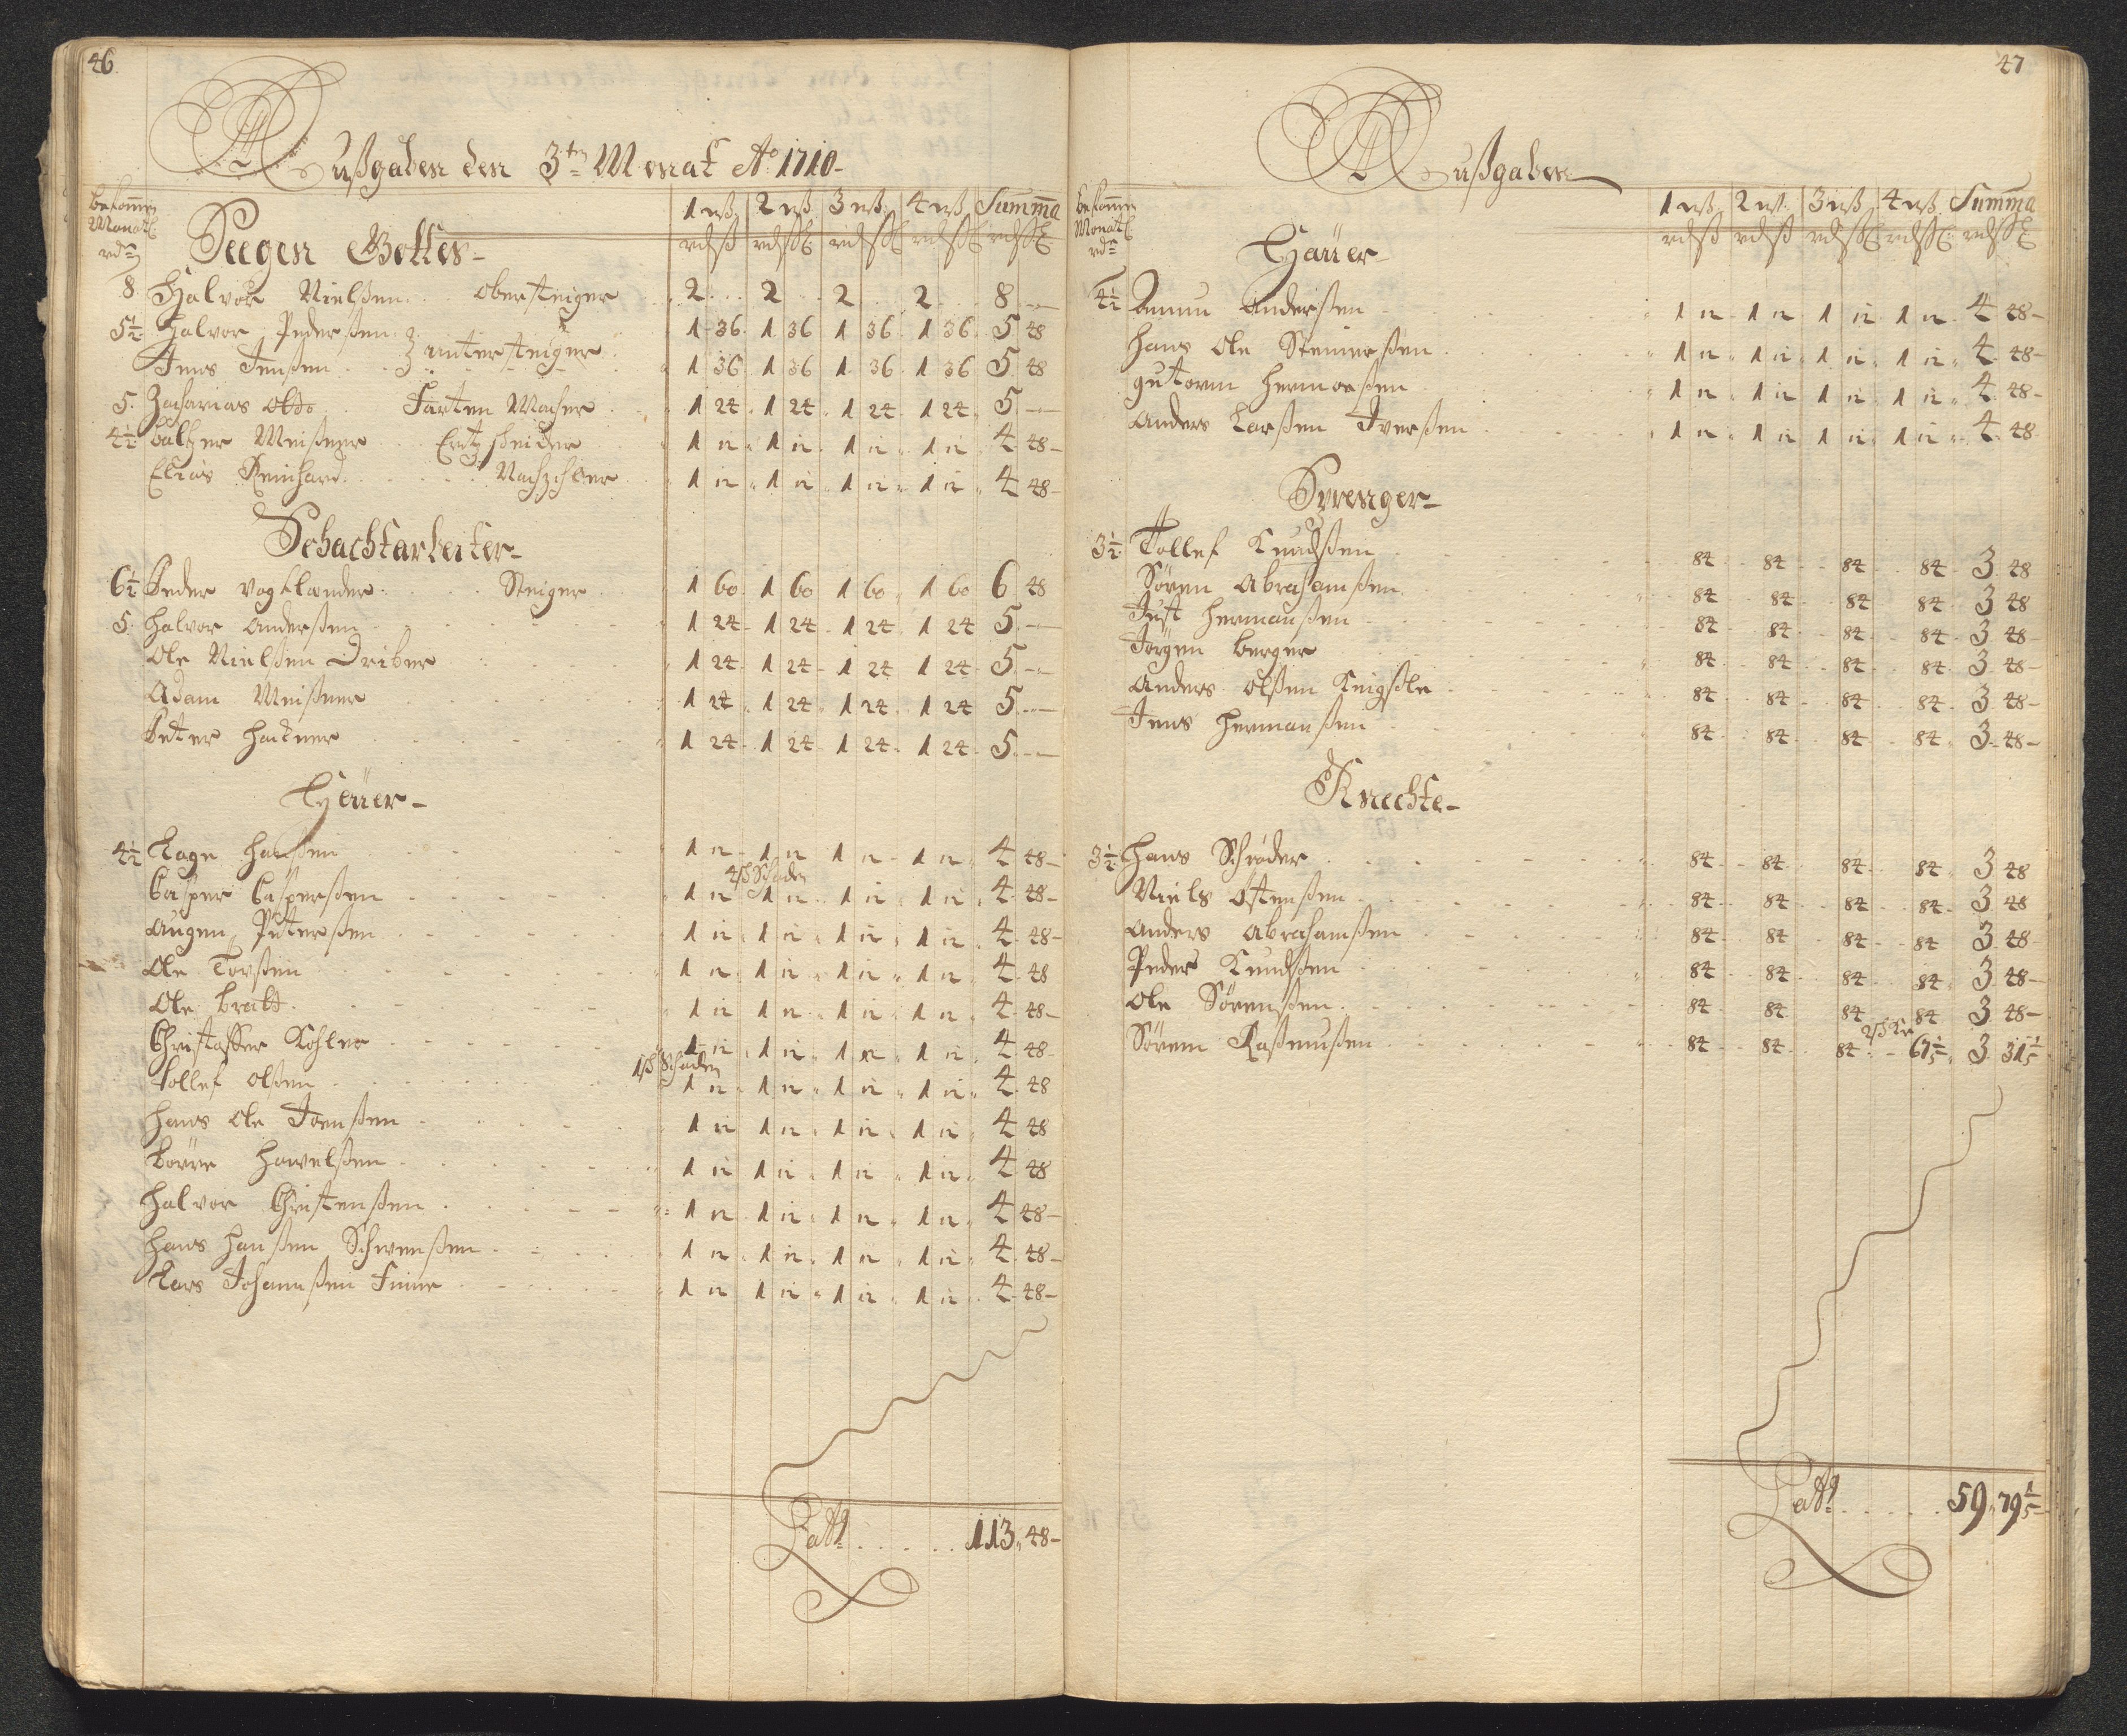 46
Außgaben den 3ten Monat Ao 1710
bekommen 1 wß 2 wß 3 wß 4 wß Summa
Monatl:
rdr
Seegen Gottes
8 Halvor Nielßen Obersteiger 2 2 2 2 8
5½ Halvor Pederßen 1 36 1 36 1 36 1 36 5 48
Jens Jenßen Untersteiger 1 36 1 36 1 36 1 36 5 48
5 Zacharias Olde 1 24 1 24 1 24 1 24 5
4½ Baltzer Meißner Ertzscheider 1 12 1 12 1 12 1 12 4 48
Elias Reinhard 1 12 1 12 1 12 1 12 4 48
Schachtarbeiter
6½ Peder Vogtlander Steiger 1 60 1 60 1 60 1 60 6 48
5 Halvor Anderßen 1 24 1 24 1 24 1 24 5
Ole Nielßen Driber 1 24 1 24 1 24 1 24 5
Adam Meißner 1 24 1 24 1 24 1 24 5
Peter Hackner 1 24 1 24 1 24 1 24 5
Häüer
4½ Lage Hanßen 1 12 1 12 1 12 1 12 4 48
4 ß Schaden
Casper Casperßen 1 12 1 12 1 12 1 12 4 48
Augen Peterßen 1 12 1 12 1 12 1 12 4 48
Ole Torßen 1 12 1 12 1 12 1 12 4 48
Ole Bratt 1 12 1 12 1 12 1 12 4 48
Christoffer Kohler 1 12 1 12 1 12 1 12 4 48
1 ß Schaden
Tollef Olßen 1 12 1 12 1 12 1 12 4 48
Hans Ole Joenßen 1 12 1 12 1 12 1 12 4 48
Börre Hawelßen 1 12 1 12 1 12 1 12 4 48
Halvor Christenßen 1 12 1 12 1 12 1 12 4 48
Hans Hanßen Schwenßen 1 12 1 12 1 12 1 12 4 48
Lars Johanßen Finne 1 12 1 12 1 12 1 12 4 48
Latt 113 48
47
Außgaben
bekommen 1 wß 2 wß 3 wß 4 wß Summa
Monatl:
rdr
Häüer
4½ Amun Anderßen 1 12 1 12 1 12 1 12 4 48
Hans Ole Steinerßen 1 12 1 12 1 12 1 12 4 48
Gutorm Hermoeßen 1 12 1 12 1 12 1 12 4 48
Anders Larßen Iverßen 1 12 1 12 1 12 1 12 4 48
Sprenger
3½ Tollef Knudßen 84 84 84 84 3 48
Sören Abrahamßen 84 84 84 84 3 48
Just Hermanßen 84 84 84 84 3 48
Jörgen Berger 84 84 84 84 3 48
Anders Olßen 84 84 84 84 3 48
Jens Hermanßen 84 84 84 84 3 48
Knechte
3½ Hans Schröder 84 84 84 84 3 48
Niels Ostenßen 84 84 84 84 3 48
Anders Abrahamßen 84 84 84 84 3 48
Peder Knudßen 84 84 84 84 3 48
Ole Sörenßen 84 84 84 84 3 48
2 ß Kr
Sören Raßmußen 84 84 84 67⅕ 3 31⅕
Latt 59 79⅕